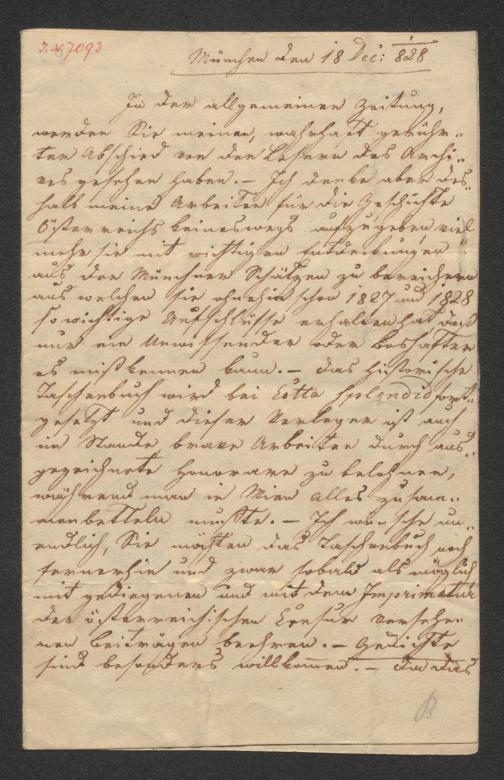 J. N. 7093
München den 18 Dec: 828
In der allgemeinen Zeitung,
werden Sie meinen, wahrhaft gerühr-
ten Abschied von den Lesern des Archi-
ves gesehen haben. – Ich denke aber des-
halb meine Arbeiten für die Geschichte
Österreichs keineswegs aufzugeben, viel
mehr sie mit wichtigen Entdeckungen
aus den Münchner Schätzen zu bereichern
aus welchen sie ohnehin schon 1827 und 1828
so wichtige Aufschlüsse erhalten hat daß
nur ein Unwissender oder Boshafter
es mißkennen kann. – Das historische
Taschenbuch wird bei Cotta splendid fort-
gesetzt und dieser Verleger ist auch
im Stande, brave Arbeiten durch aus-
gezeichnete Honorare zu belohnen,
während man in Wien alles zusam-
menbetteln mußte. – Ich wünsche un-
endlich, Sie möchten das Taschenbuch noch
fernerhin und zwar sobald als möglich
mit gediegenen und mit dem Imprimatur
der österreichischen Censur versehe-
nen Beiträgen beehren. – Gedichte
sind besonders willkommen. – In das